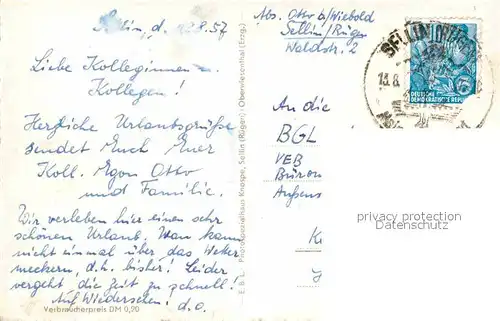 Sellin, d. 12.8.57
Liebe Kolleginnen u.
Kollegen!
Herzliche Urlaubsgrüße
sendet Euch Euer
Koll. Egon Otto
und Familie.
Wir verleben hier einen sehr
schönen Urlaub. Man kann
nicht einmal über das Wetter
meckern, d.h. bisher! Leider
vergeht die Zeit zu schnell!
Auf Wiedersehen! d.o.
Verbraucherpreis DM 0,20
E. B. L. Photospezialhaus Knospe, Sellin (Rügen) / Oberwiesenthal (Erzg.)
Abs. Otto b/Wiebold
Sellin/Rügen
Waldstr. 2
SELLIN (RÜGEN)
13.8.
DEUTSCHE
DEMOKRATISCHE REPUBLIK
5
An die
BGL
VEB
Büro
Aussen
privacy protection
Datenschutz